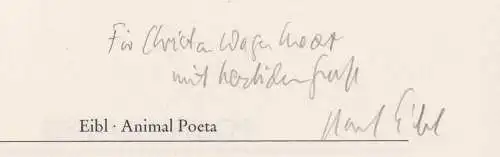 Für Christa Wagenknecht
mit herzlichem Gruß
Karl Eibl
Eibl · Animal Poeta